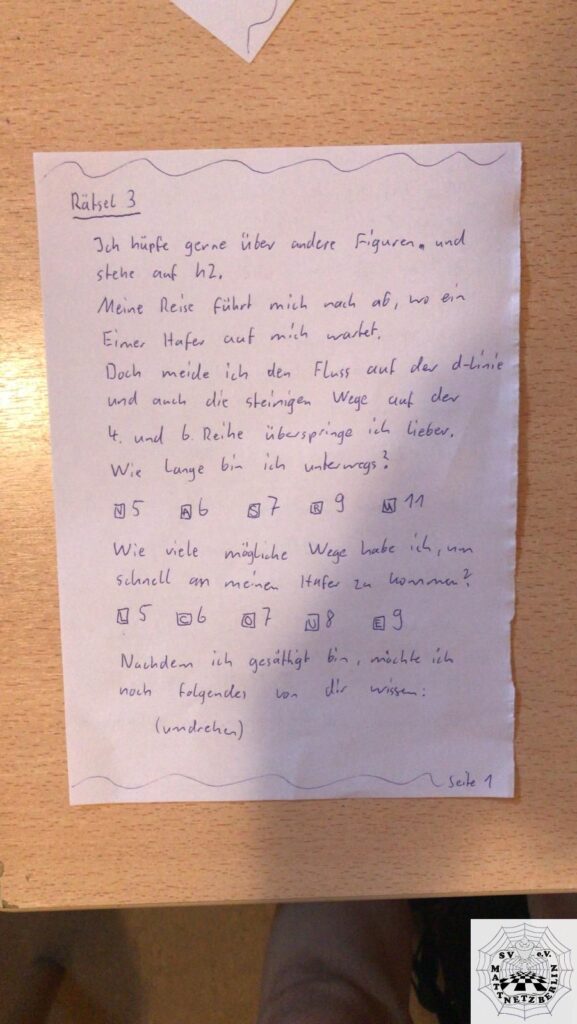 Rätsel 3
Ich hüpfe gerne über andere Figuren. und
stehe auf h2.
Meine Reise führt mich nach a6, wo ein
Eimer Hafer auf mich wartet.
Doch meide ich den Fluss auf der d-Linie
und auch die steinigen Wege auf der
4. und 6. Reihe überspringe ich lieber.
Wie lange bin ich unterwegs?
N 5 A 6 S 7 R 9 M 11
Wie viele mögliche Wege habe ich, um
schnell an meinen Hafer zu kommen?
L 5 C 6 O 7 U 8 E 9
Nachdem ich gesättigt bin, möchte ich
noch folgendes von dir wissen:
(umdrehen)
Seite 1
SV e.V.
MATT NETZ BERLIN